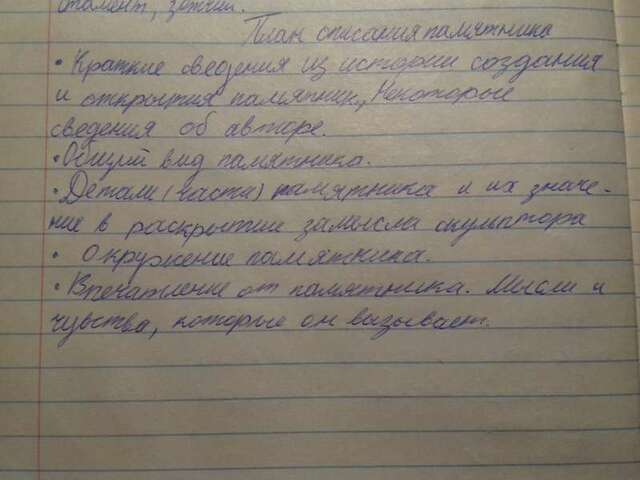 стамент, зодчий.
План описания памятника
• Краткие сведения из истории создания
и открытия памятник, Некоторые
сведения об авторе.
• Общий вид памятника.
• Детали (части) памятника и их значе-
ние в раскрытии замысла скульптора
• Окружение памятника.
• Впечатление от памятника. Мысли и
чувства, которые он вызывает.